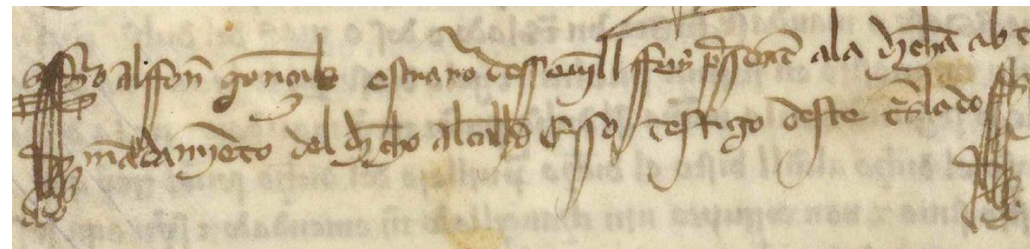 yo alffon gonçales escriuano de seuilla fuy presente ala dicha abt
mandamiento del dicho alcalld e sso testigo deste traslado